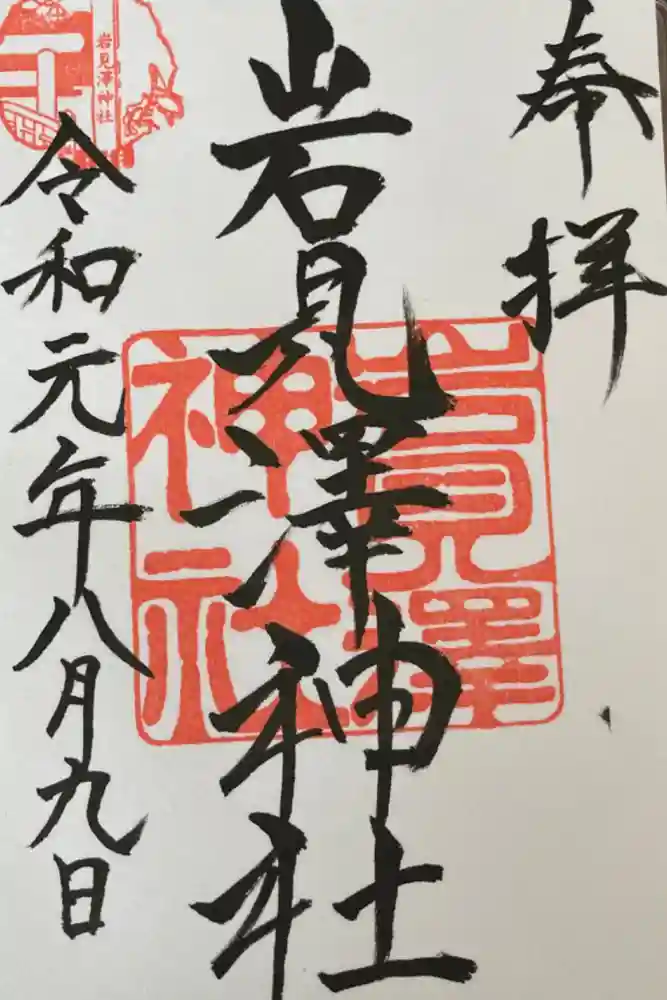 奉拝
岩見澤神社
岩見澤神社
令和元年八月九日
岩見澤神社